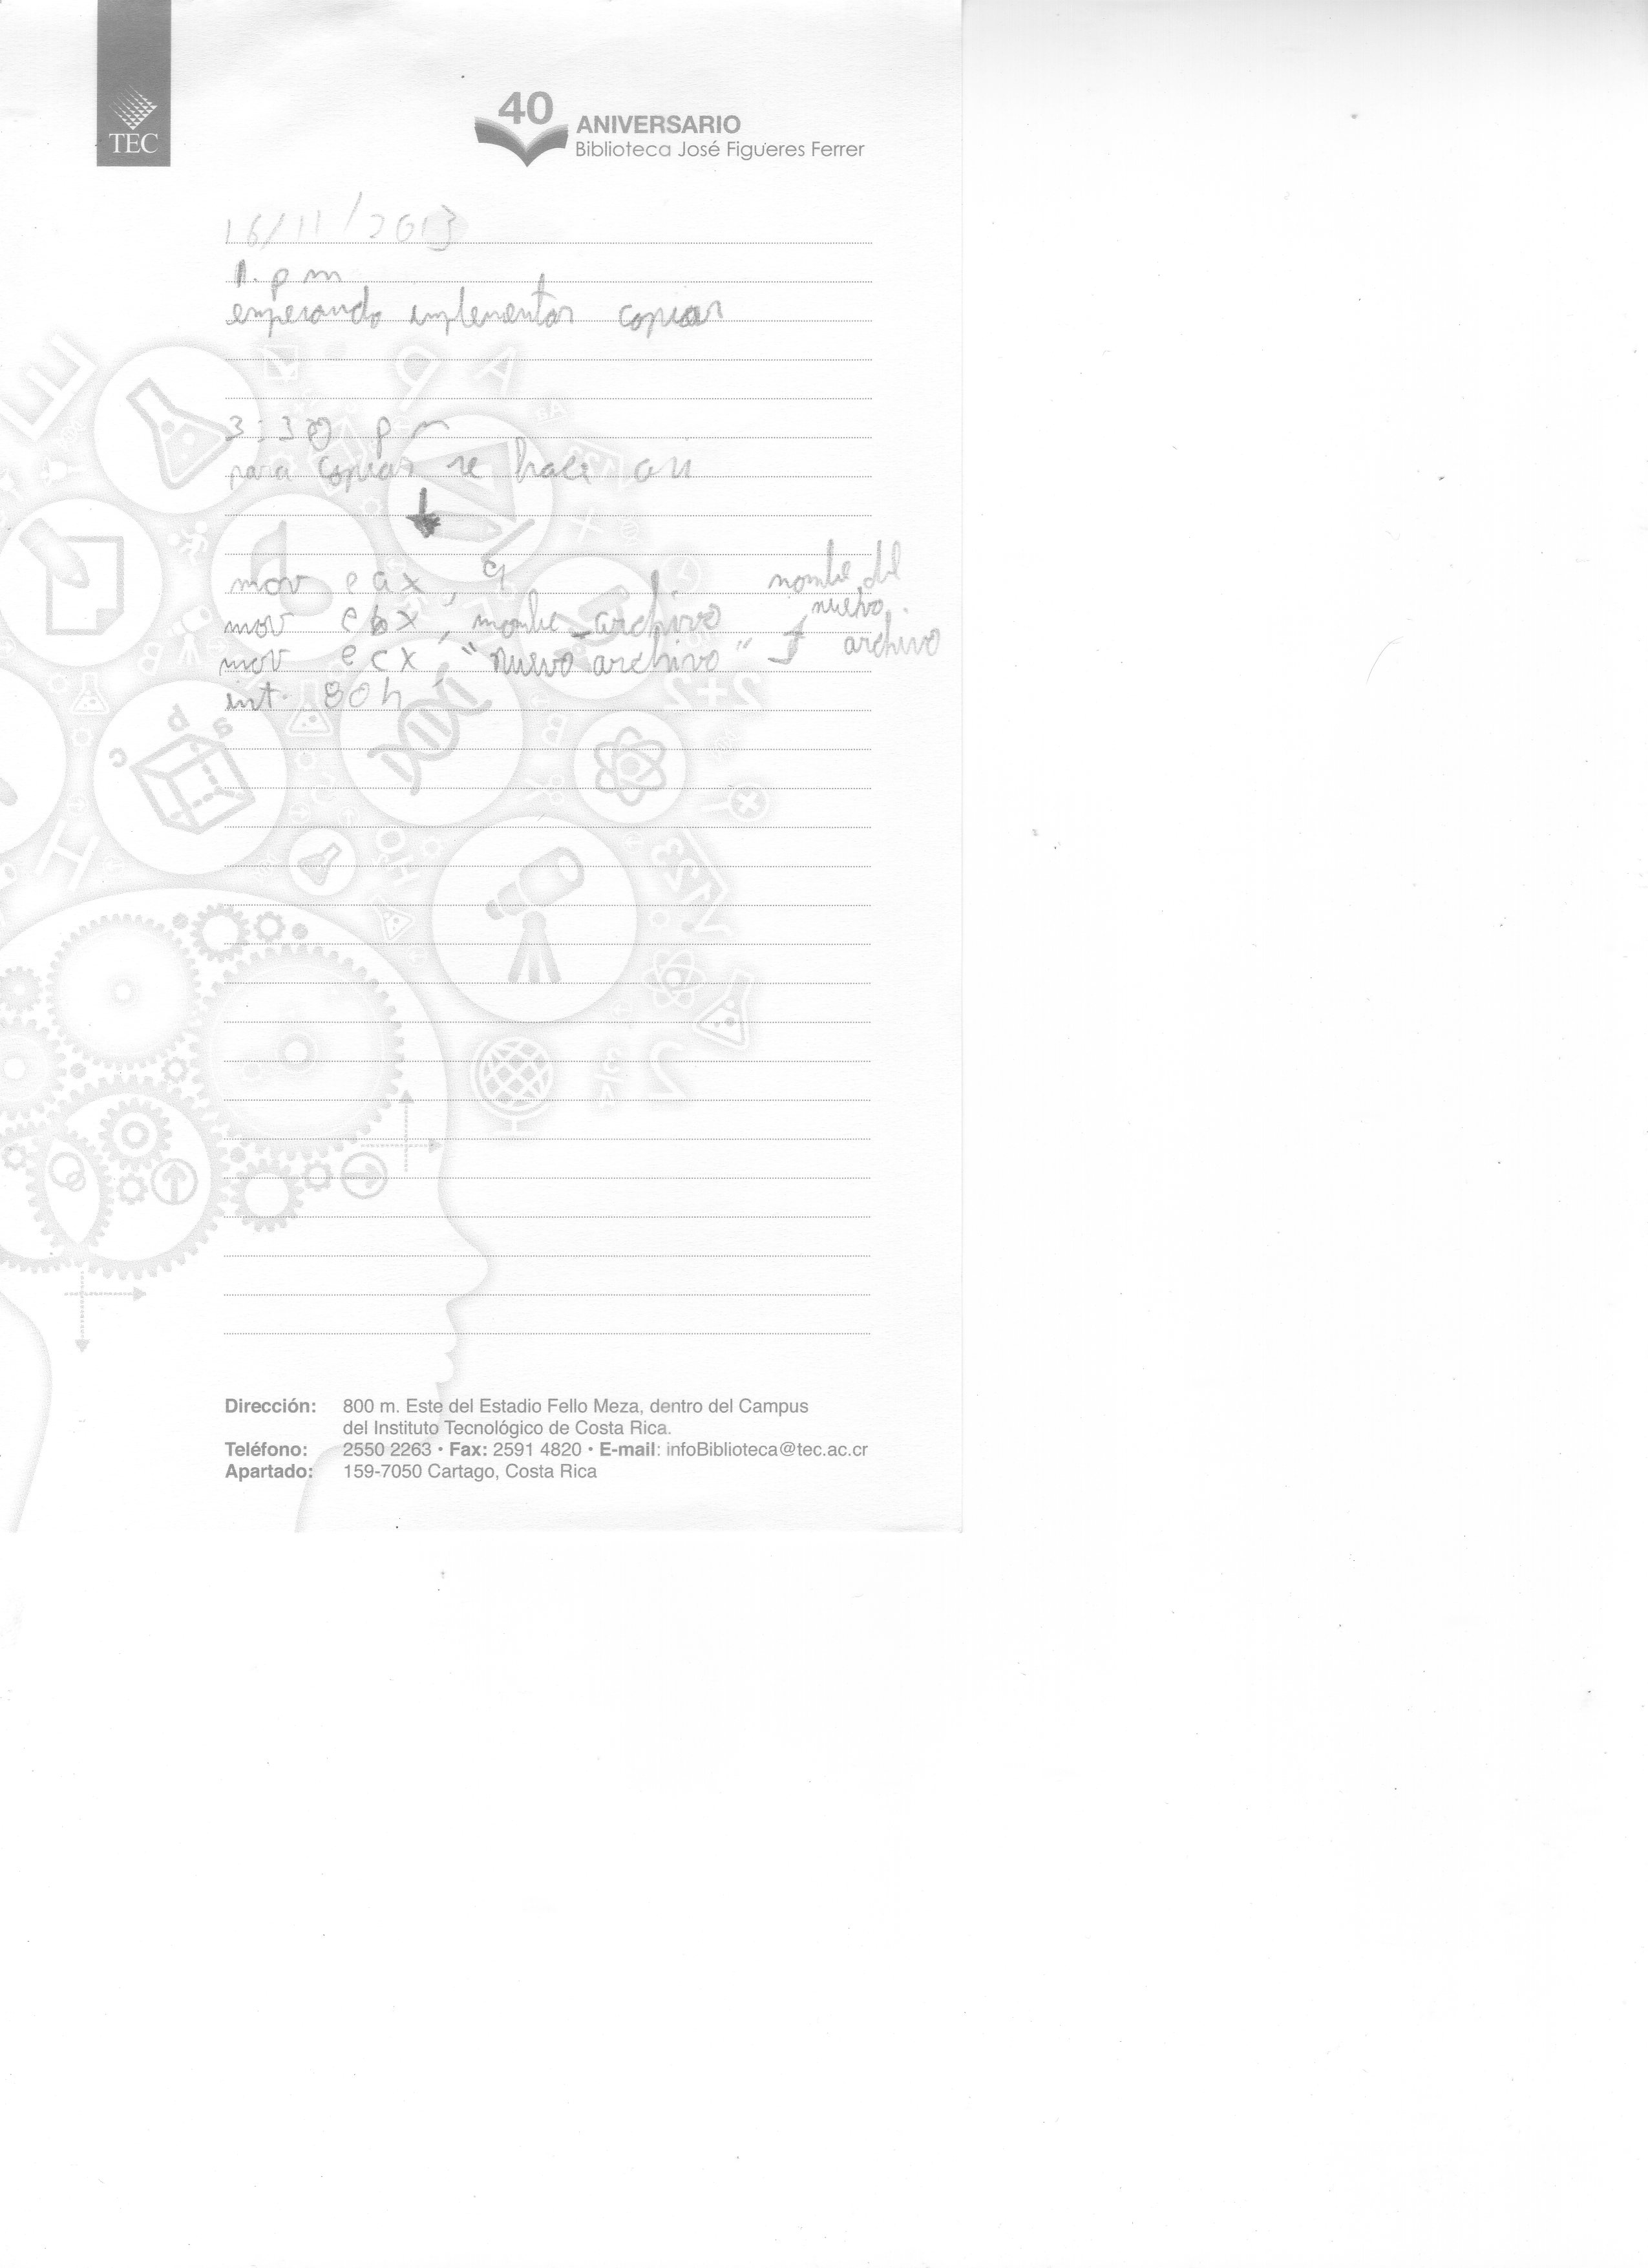 TEC
40
ANIVERSARIO
Biblioteca José Figueres Ferrer
16/11/2013
1. pm
empezando implementar copiar
3:30 pm
para copiar se hace así
mov eax, 9
mov ebx, nombre_archivo
mov ecx, "nuevo archivo"
nombre del
nuevo
archivo
int 80h
Dirección: 800 m. Este del Estadio Fello Meza, dentro del Campus
del Instituto Tecnológico de Costa Rica.
Teléfono: 2550 2263 • Fax: 2591 4820 • E-mail: infoBiblioteca@tec.ac.cr
Apartado: 159-7050 Cartago, Costa Rica